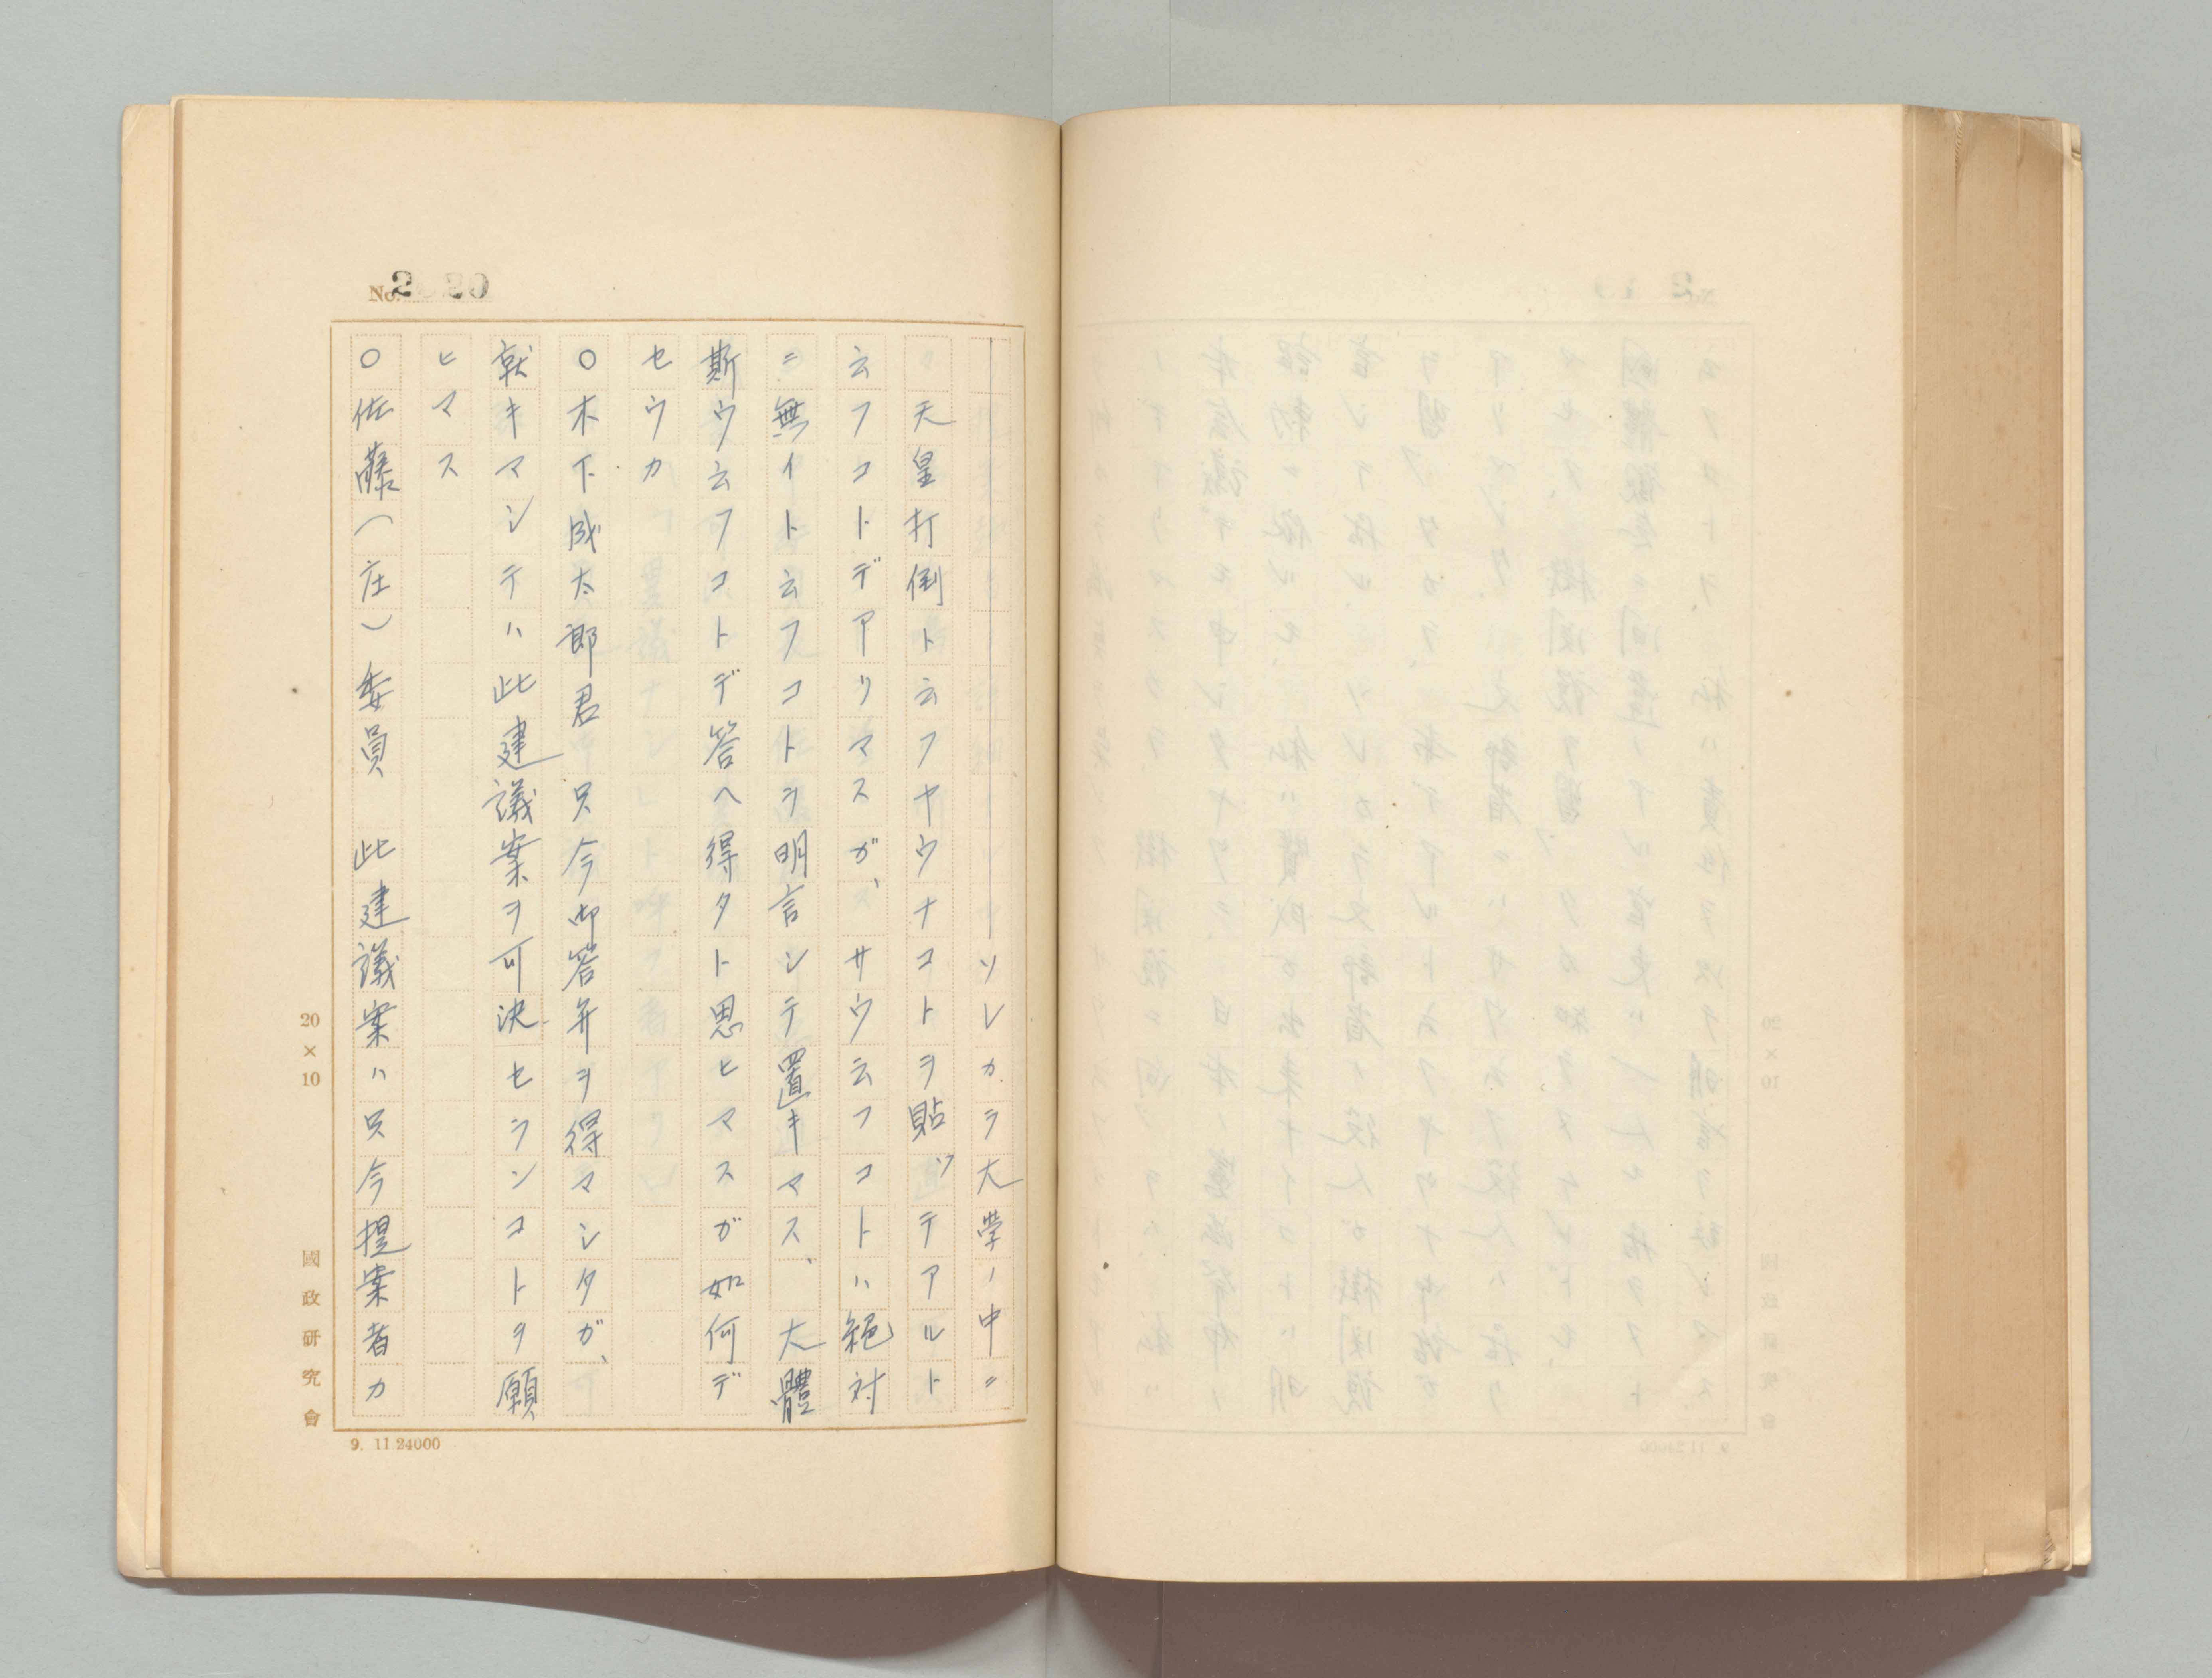 No. 2 20
――――ソレカラ大學ノ中ニ
天皇打倒ト云フヤウナコトヲ貼ツテアルト
云フコトデアリマスガ、サウ云フコトハ絕対
ニ無イト云フコトヲ明言シテ置キマス、大體
斯ウ云フコトデ答ヘ得タト思ヒマスガ如何デ
セウカ
○木下成太郎君 只今御答弁ヲ得マシタガ、
就キマシテハ此建議案ヲ可決セランコトヲ願
ヒマス
○佐藤(庄)委員 此建議案ハ只今提案者カ
20×10
國政研究會
9. 11.24000